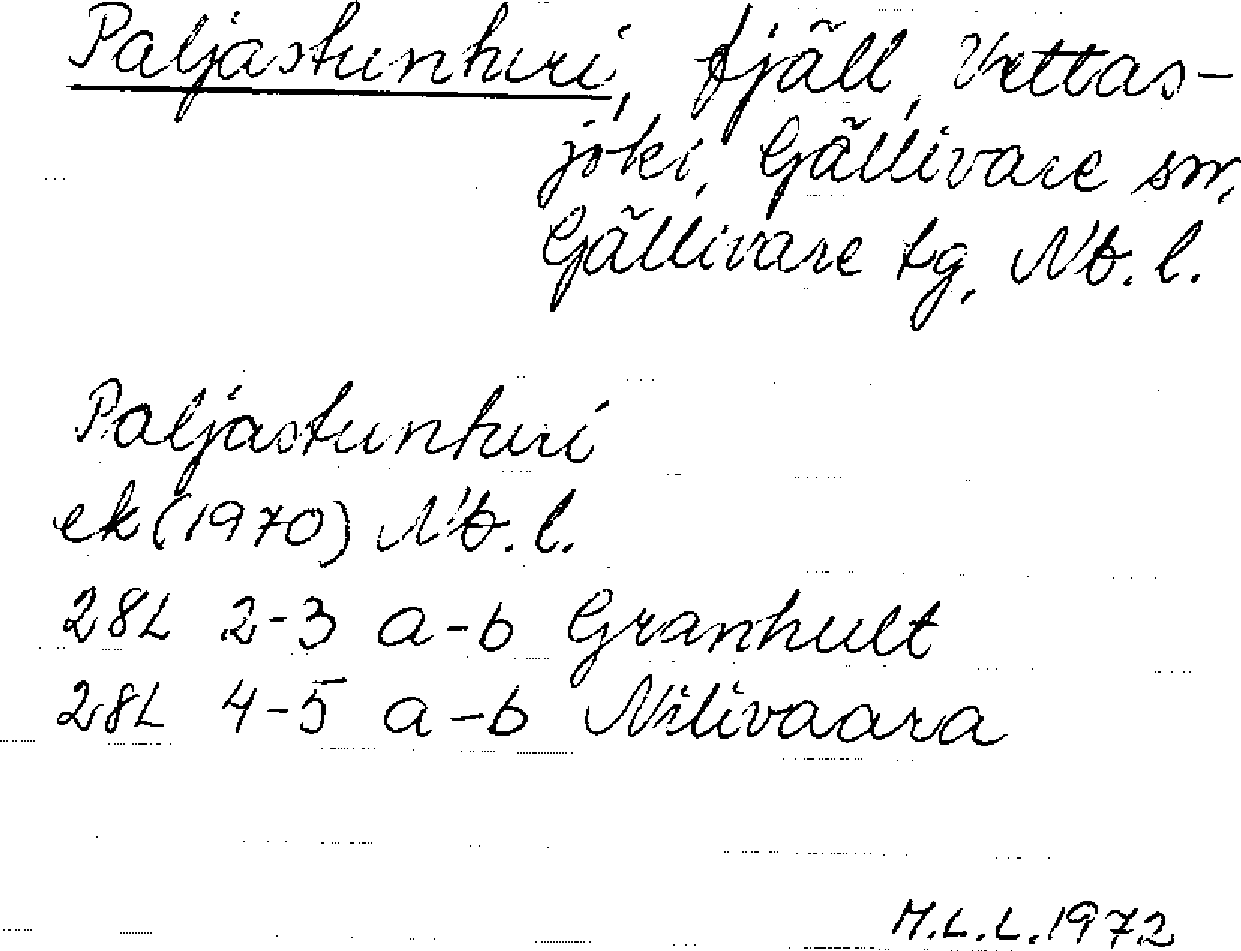 Paljastunturi, fjäll, Vettas-
joki, Gällivare sn,
Gällivare tg, Nb. l.
Paljastunturi
ek (1970) Nb. l.
28L 2-3 a-b Granhult
28L 4-5 a-b Nilivaara
M.L.L. 1972